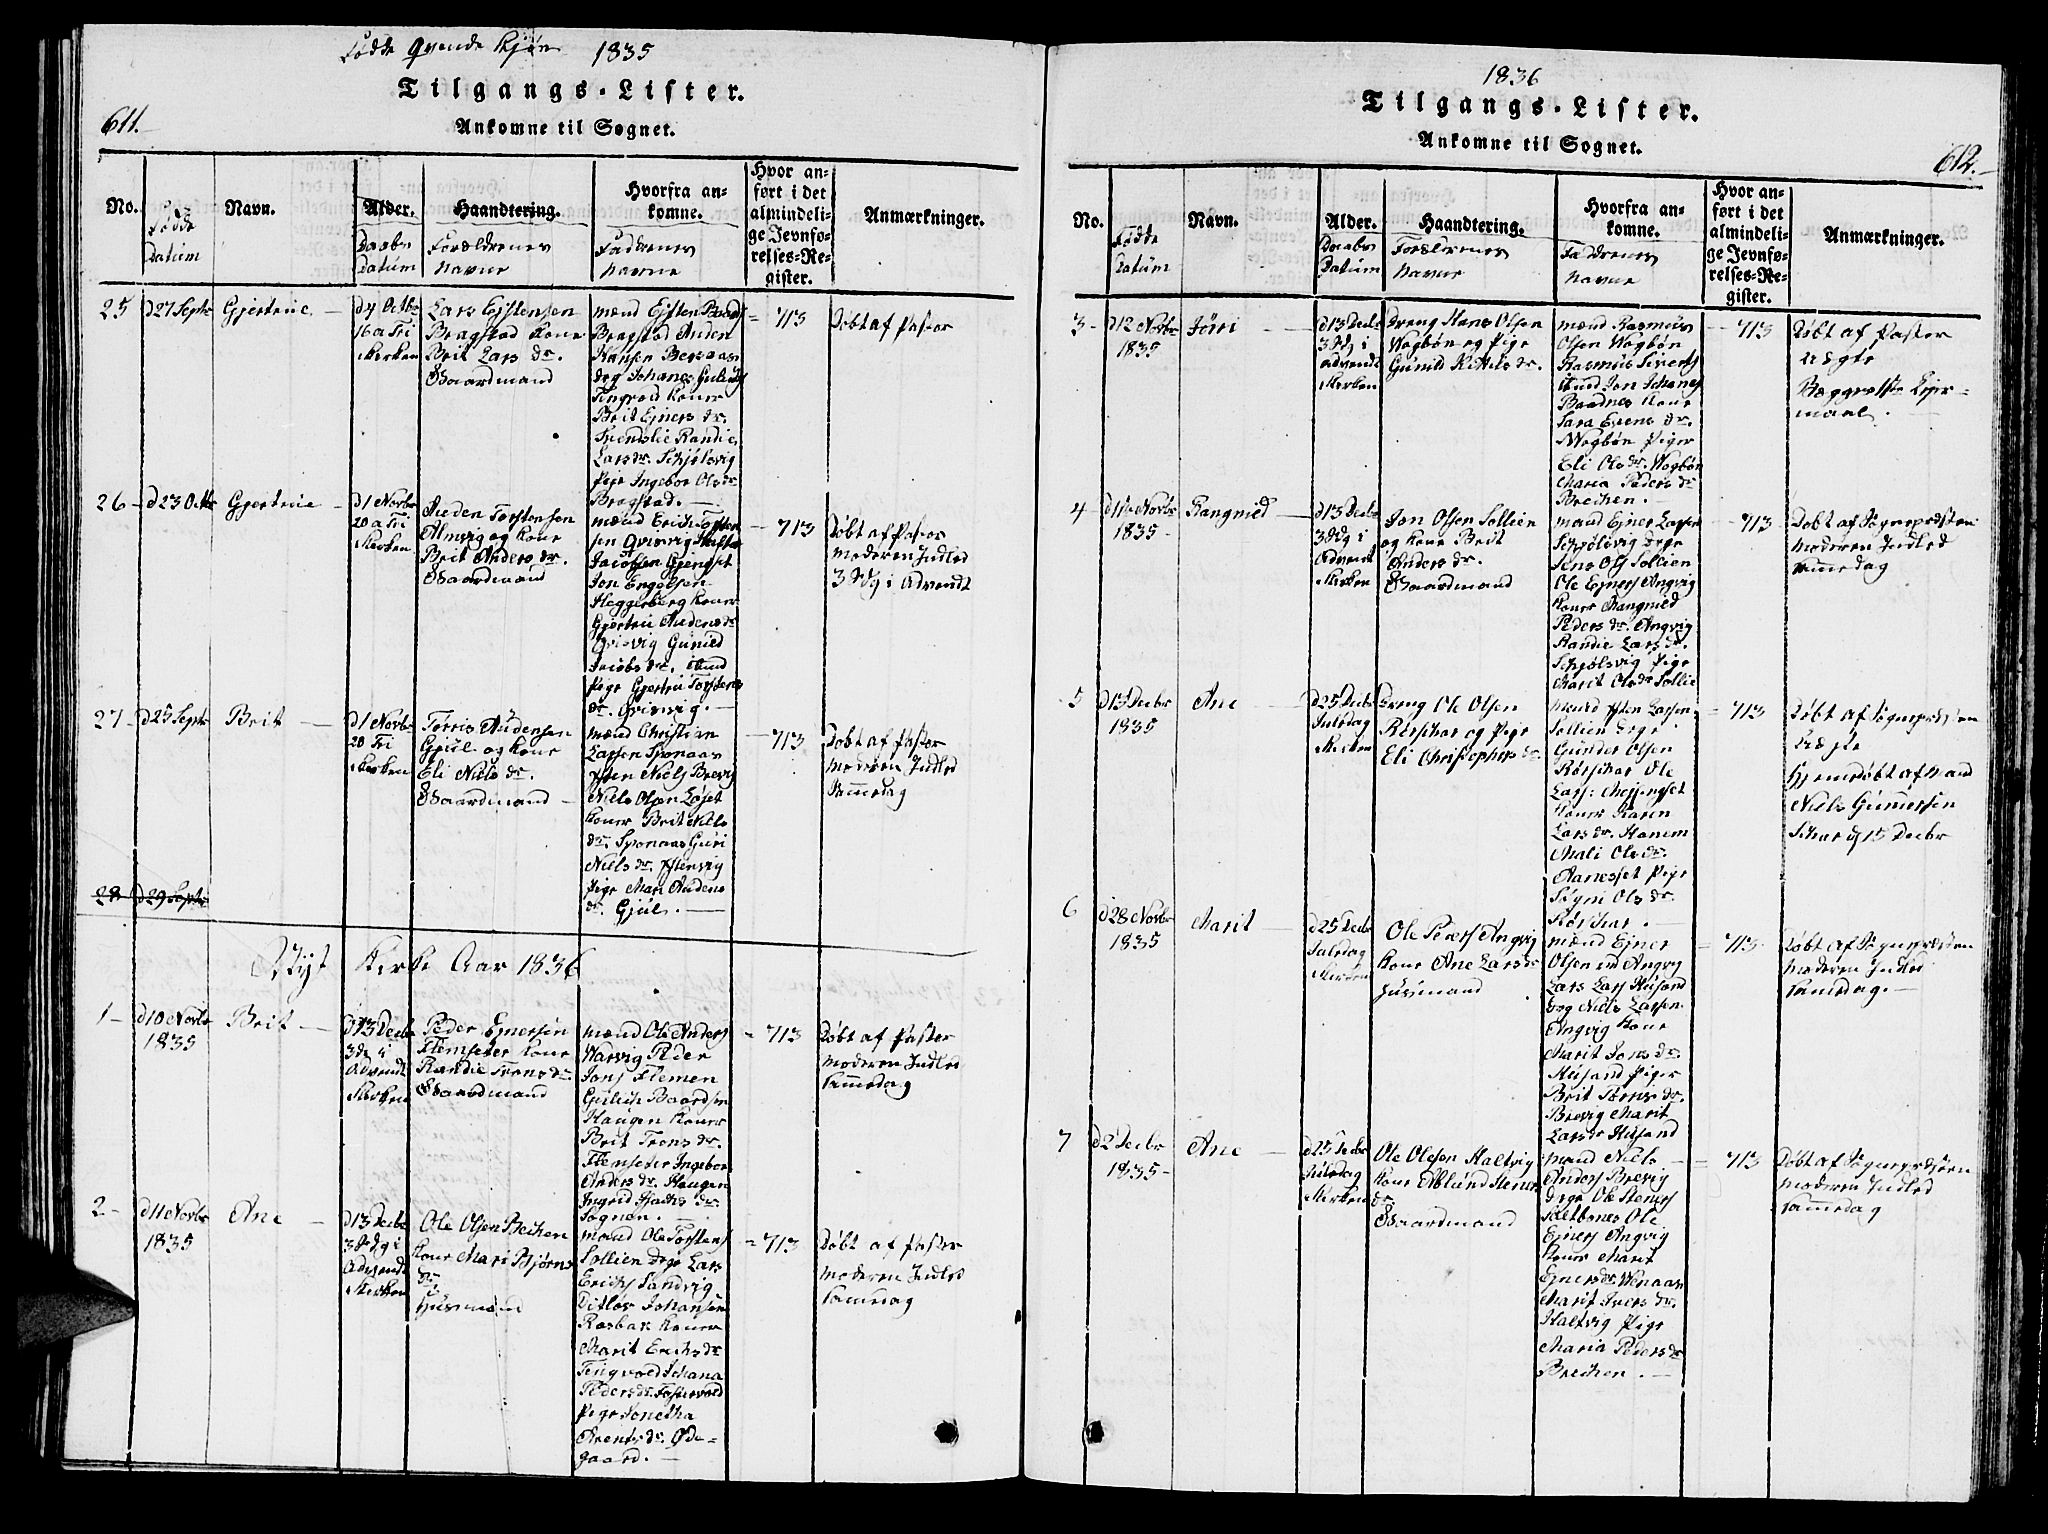 Fødde Qvende Kjøn 1835
Tilgangs-Lister.
611.
Ankomne til Sognet.
No.
Fødde
Datum
Navn.
Alder.
Daabs
Datum
Haandtering.
Forældrenes
Navne
Hvorfra an-
komne.
Faddrenes
Navne
Hvor an-
ført i det
almindeli-
ge Jevnfø-
relses-Re-
gister.
Anmærkninger.
25
d 27 Septr
Gjertrue
d 4 Octbr
16 a Tri
Kirken
Lars Ejstensen
Bragstad Kone
Brit Lars dr.
Gaardmand
mænd Ejsten Baads
Bragstad Anden
Hansen Bersaas
Tingvold Koner
Brit Ejners dr.
Lars dr. Schjølsvig
Pige Ingebor Ols dr
Bragstad.
713
Døbt af Pastor
26
d 23 Octbr
Gjertrue
d 1 Novbr
20 a Tri
Kirken
Auden Torstensen
Almvig og Kone
Brit Anders dr.
Gaardmand
mænd Erich Tosten
sen Qvisvig
Jacobsen Gjengset
Jon Engelsen
Heggerberg Koner
Gjertrue Audens dr
Qvisvig Gunild
Jacobs dr.
Pige Gjertru Torstens
dr. Qvisvig.
713
Døbt af Pastor
moderen Indled
3 Sdg i Advendt
27
d 25 Septr
Brit
d 1 Novbr
20 Tri
Kirken
Tørris Audensen
Gjul og Kone
Eli Niels dr.
Gaardmand
mænd Christian
Larsen Sponaas
Niels Brevig
Niels Olsen Løset
Koner Brit Niels
dr. Sponaas Guri
Niels dr. Ystenvig
Pige Mari Audens
dr. Gjul.
713
Døbt af Pastor
moderen Indled
Sammedag
28
d 29 Septr
Nyt Kirke Aar 1836
1
d 10 Novbr
1835
Brit
d 13 Decbr
3 S i
Advendt
Kirken
Peder Ejnersen
Flemseter Kone
Randie Trons dr.
Gaardmand
mænd Ole Anders
Warvig Peder
Jons Flemen
Gulich Baardsen
Haugen Koner
Brit Trons dr.
Flemseter Ingebor
Anders dr. Haugen
Ingrid
Sognen.
713
Døbt af Pastor
moderen Indled
Sammedag
2
d 11 Novbr
1835
Ane
d 13 Decbr
3 Sdg i
Advendt
Kirken
Ole Olsen Beichen
Kone Mari Bjørns
dr.
Huusmand
mænd Ole Torstens
Sollien Drge Lars
Erichs Sandvig
Ditløv Johansen
Rosbak Koner
Marit Erichs dr
Tingvold Johana
Peders dr. Fosservold
Pige Jonetha
Arents dr. Øde-
gaard.
713
Døbt af Pastor
moderen Indled
Sammedag
1836
Tilgangs-Lister.
612.
Ankomne til Sognet.
No.
Fødde
Datum
Navn.
Alder.
Daabs
Datum
Haandtering.
Forældrenes
Navne
Hvorfra an-
komne.
Faddrenes
Navne
Hvor an-
ført i det
almindeli-
ge Jevnfø-
relses-Re-
gister.
Anmærkninger.
3
d 12 Novbr
1835
d 13 Decbr
3 Sdg i
Advendt
Kirken
Dreng Hans Olsen
Wogbøn og Pige
Gunild Kittils dr.
mænd Rasmus
Olsen Wogbøn
Rasmus Siverts
Jon Johanes
Baadnes Kone
Sara Evens dr.
Wogbøn Piger
Eli Ols dr. Wogbøn
Maria Peders dr
Breichen.
713
Døbt af Pastor
Uægte
Begges 1ste Lejer-
maal.
4
Novbr
1835
Rangnied
d 13 Decbr
3 Sdg i
Advendt
Kirken
Jon Olsen Sollien
og Kone Brit
Anders dr.
Gaardmand
mænd Ejner Larsen
Schjølsvig Drge
Jens Ols Sollien
Ole Ejners Angvig
Koner Rangnied
Peders dr. Angvig
Randie Lars dr.
Schjølsvig Pige
Marit Ols dr Sollie
713
Døbt af Sognepræsten
moderen Indled
sammedag
5
d 13 Decbr
1835
Ane
d 25 Decbr
Juledag
Kirken
Dreng Ole Olsen
Rørschar og Pige
Eli Christophers dr
mænd Ysten Larsen
Sollien Drge
Gunder Olsen
Rørschar Ole
Lars: Meisingset
Koner Karen
Lars dr. Hanem
Mali Ols dr.
Aanesset Pige
Sigri Ols dr.
Rørschar.
713
Døbt af Sognepræsten
Uægte
Hjemedøbt af Mand
Niels Gundersen
Schar d 15 Decbr
6
d 28 Novbr
1835
Marit
d 25 Decbr
Juledag
Kirken
Ole Peders Angvig
Kone Ane Lars dr
Huusmand
mænd Ejner
Olsen Angvig
Lars Lars Husand
Drg Niels Larsen
Angvig Kone
Marit Jons dr.
Husand Piger
Brit Tørris dr.
Brevig Marit
Lars dr Husand
713
Døbt af Sognepræsten
moderen Indled
samedag.
7
d 2 Decbr
1835
Ane
d 25 Decbr
Juledag
Kirken
Ole Olesen Haltvig
Kone Ablund Steners
dr
Gaardmand
mænd Niels
Anders Brevig
Drge Ole Steners
Saltbones Ole
Ejners Angvig
Koner Marit
Ejners dr Wenaas
Marit Ivers dr.
Haltvig Pige
Maria Peders dr
Breichen.
713
Døbt af Sognepræsten
moderen Indled
Samedag